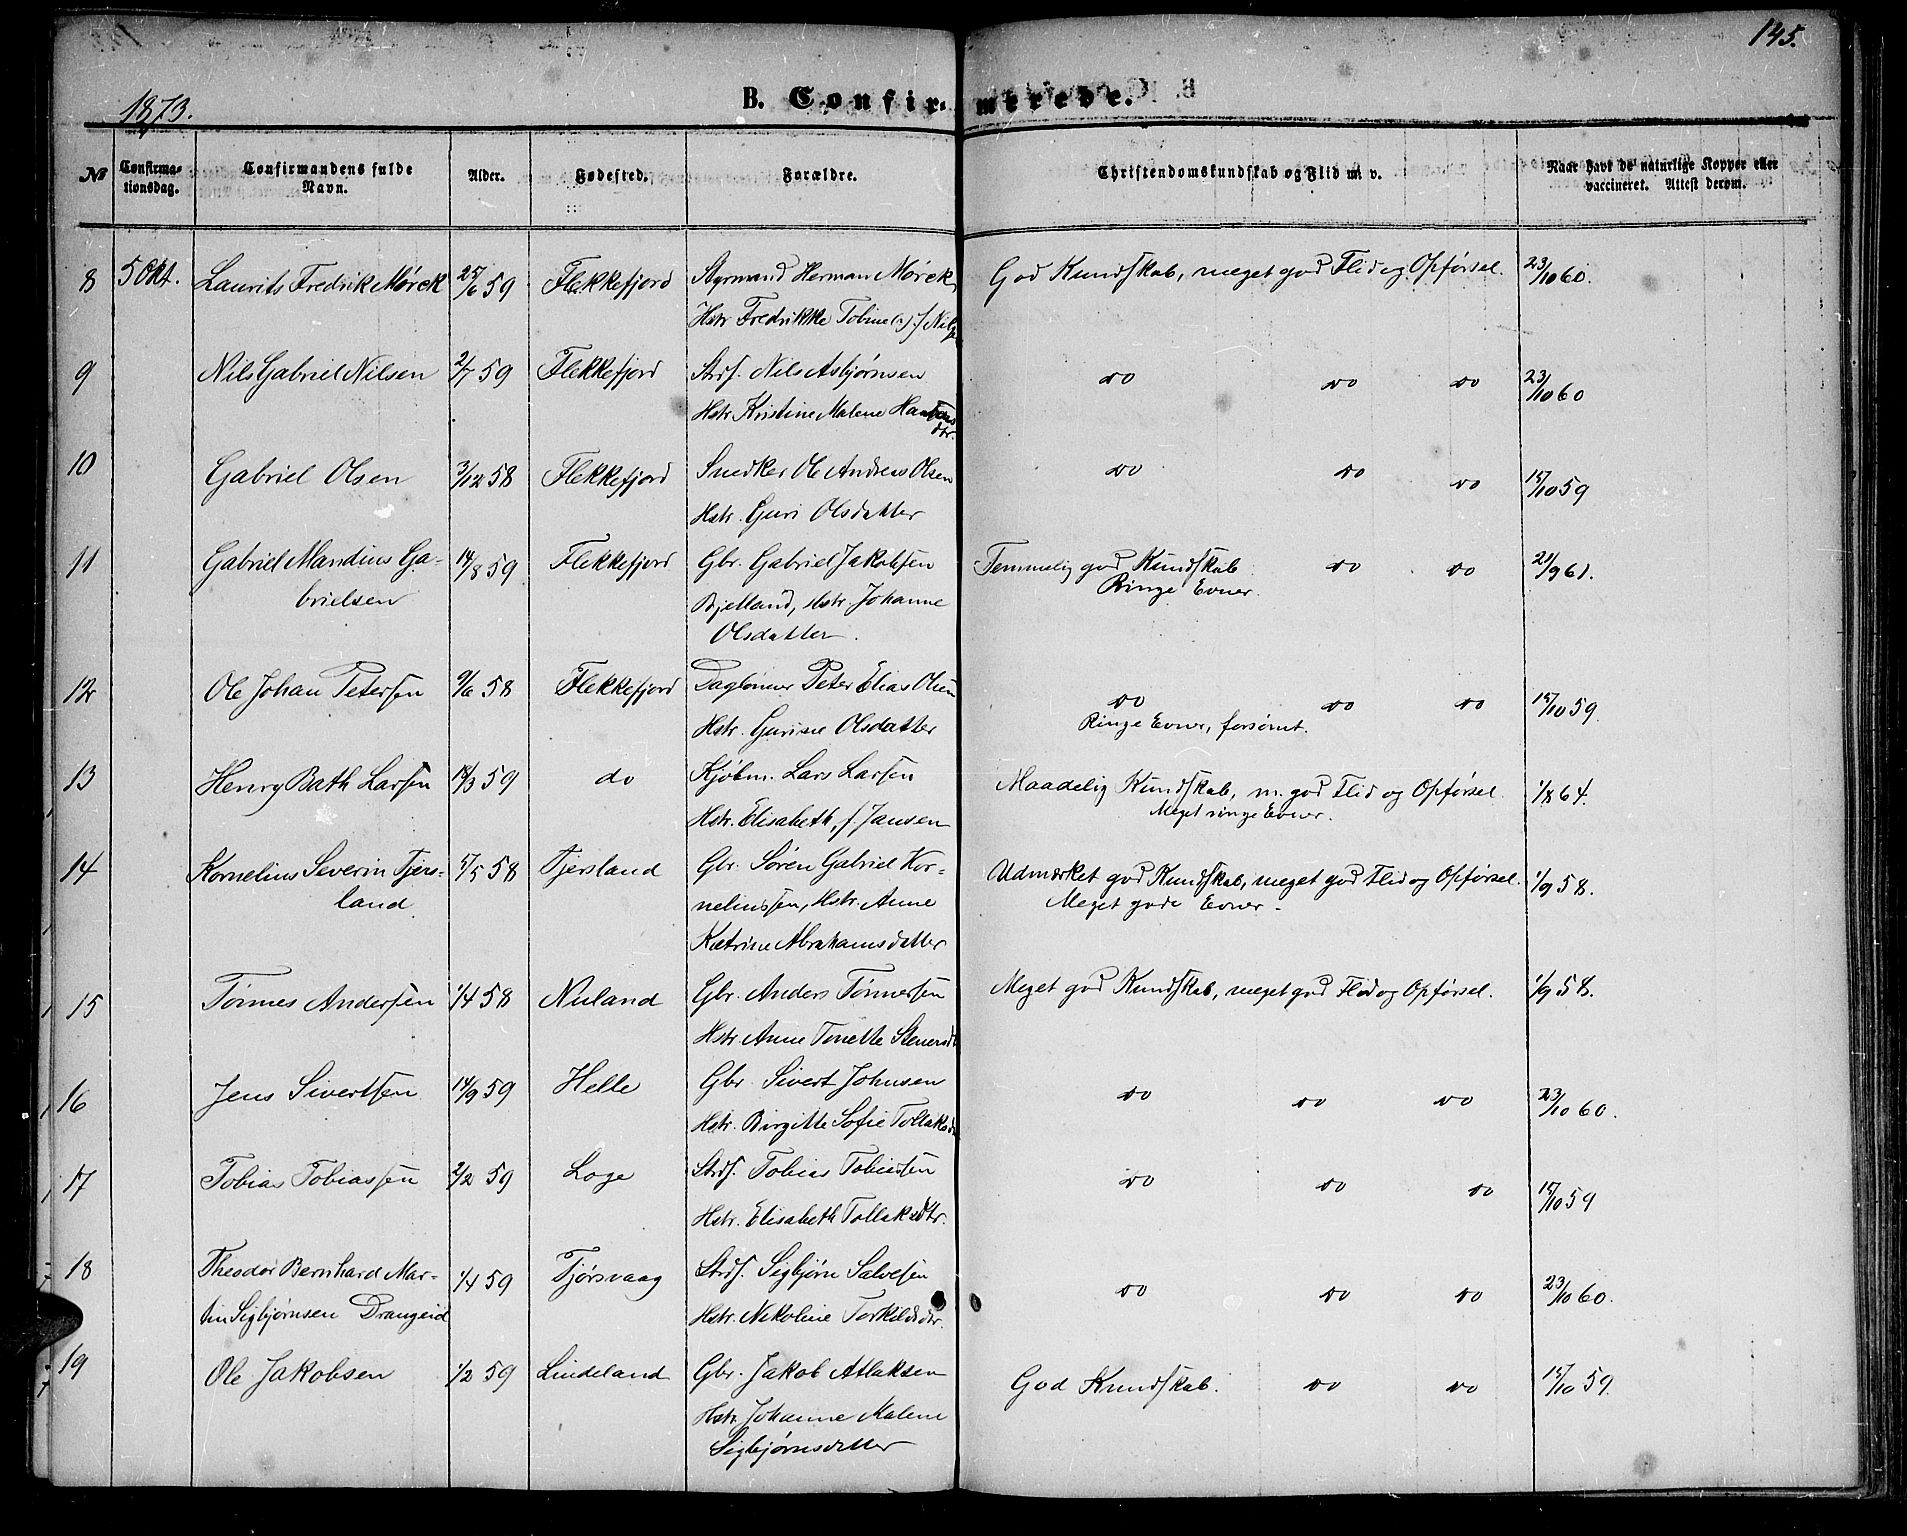 145.
1873.
B. Confirmerede.
No
Confirmationsdag.
Confirmandens fulde Navn.
Alder.
Fødested.
Forældre.
Christendomskundskab og Flid m. v.
Naar havt de naturlige Kopper eller vaccineret. Attest derom.
8 5 Okt. Laurits Fredrik Mørck 25/6 59 Flekkefjord Styrmand Herman Mørck, God Kundskab, meget god Flid og Opførsel. 23/10 60.
Hstr Fredrikke Tobine
9 Nils Gabriel Nilsen 2/7 59 Flekkefjord Strds. Nils Asbjørnsen do do do 23/10 60
Hstr Kristine Malene
10 Gabriel Olsen 3/12 58 Flekkefjord Snedker Ole Andreas Olsen do do do 15/10 59
Hstr. Guri Olsdatter
11 Gabriel Mandius Ga- 14/8 59 Flekkefjord Gbr. Gabriel Jakobsen Temmelig god Kundskab do do 21/9 61.
brielsen Bjelland, Hstr. Johanne Ringe Evner.
Olsdatter.
12 Ole Johan Petersen 9/6 58 Flekkefjord Daglønner Peter Elias Olsen do do do 15/10 59.
Hstr. Gurine Olsdatter Ringe Evner, forsømt.
13 Henry Bath Larsen 59 do Kjøbm. Lars Larsen Maadelig Kundskab, m. god Flid og Opførsel 1/8 64.
Hstr. Elisabeth, f. Jansen Meget ringe Evner.
14 Kornelius Severin Tjers- 58 Tjersland Gbr. Søren Gabriel Kor- Udmærket god Kundskab, meget god Flid og Opførsel. 1/9 58.
land neliussen, Hstr. Anne Meget gode Evner.
Katrine Abrahamsdatter
15 Tønnes Andersen 1/4 58 Nuland Gbr. Anders Tønnesen Meget god Kundskab, meget god Flid og Opførsel. 1/9 58.
Hstr Anne Tonette
16 Jens Sivertsen 14/9 59 Helle Gbr. Sivert Johnsen do do do 23/10 60.
Hstr. Birgitte Sofie
17 Tobias Tobiassen 2/2 59 Loge Strds. Tobias Tobiassen do do do 15/10 59
Hstr. Elisabeth Tollaksdtr.
18 Theodor Bernhard Mar- 1/4 59 Tjørsvaag Strds. Sigbjørn Salvesen do do do 23/10 60.
tin Sigbjørnsen Drangeid Hstr. Nikoline Torkildsdtr.
19 Ole Jakobsen 1/2 59 Lindeland Gbr. Jakob Atlaksen God Kundskab. do do 15/10 59.
Hstr Johanne Malene
Sigbjørnsdatter